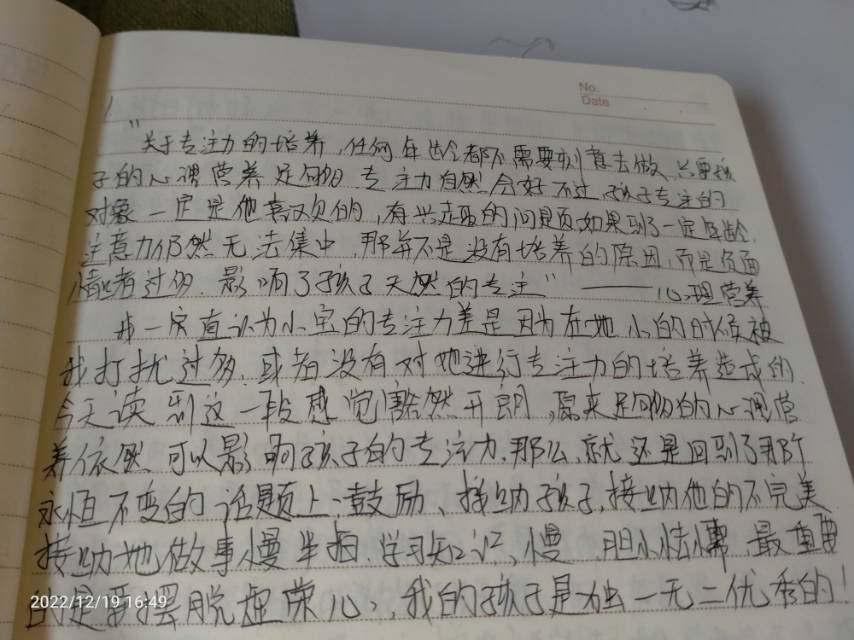 No.
Date
"关于专注力的培养,任何年龄都不需要刻意去做,只要孩
子的心理营养足够,专注力自然会好,不过,孩子专注的
对象一定是他喜欢的,有兴趣的问题,如果到了一定年龄,
注意力仍然无法集中,那并不是没有培养的原因,而是负面
情绪过多,影响了孩子天然的专注"——心理营养
我一直认为小宝的专注力差是因为在她小的时候被
我打扰过多,或者没有对她进行专注力的培养造成的,
今天读到这一段感觉豁然开朗,原来足够的心理营
养依然可以影响孩子的专注力,那么,就还是回到了那个
永恒不变的话题上:鼓励、接纳孩子,接纳他的不完美
接纳她做事慢半拍,学习知识慢,胆小怯懦,最重要
的是要摆脱虚荣心,我的孩子是独一无二优秀的!
2022/12/19 16:49